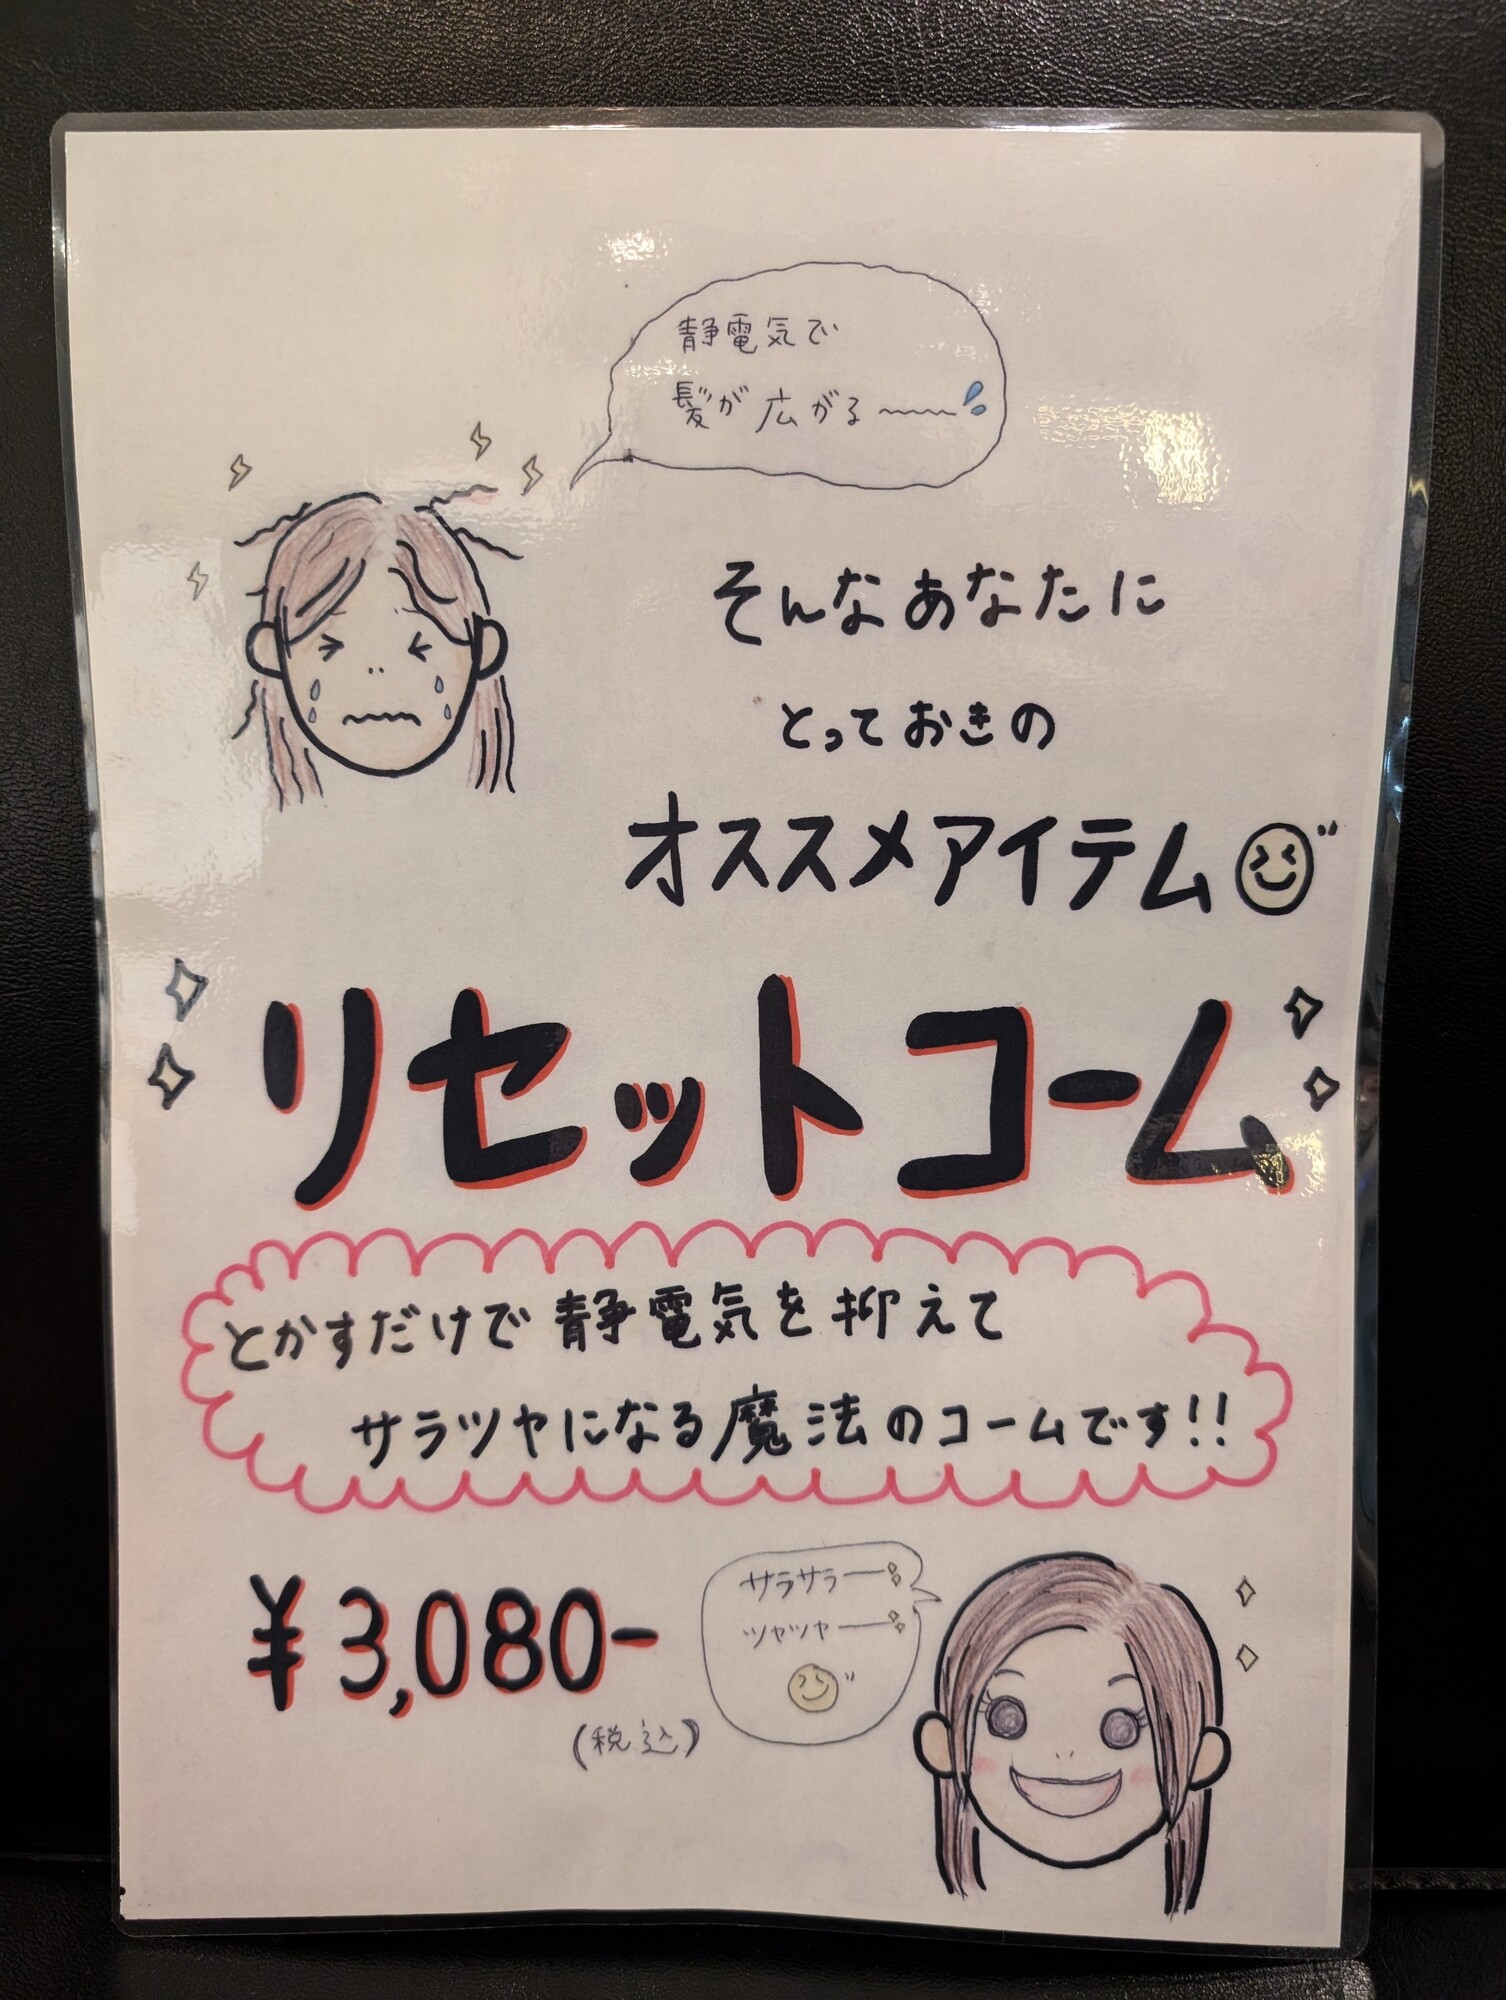 静電気で
髪が広がる〜〜
そんなあなたに
とっておきの
オススメアイテム
リセットコーム
とかすだけで静電気を抑えて
サラツヤになる魔法のコームです!!
¥3,080-
(税込)
サラサラー
ツヤツヤー